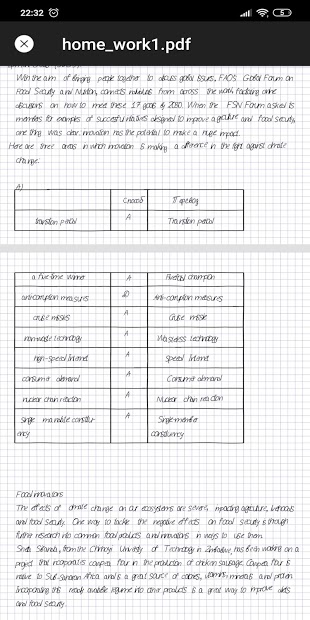 22:32
5
home_work1.pdf
With the aim of bringing people together to discuss global issues, FAO's Global Forum on
Food Security and Nutrition, connects individuals from across the world, facilitating online
discussions on how to meet these 17 goals by 2030. When the FSN Forum asked its
members for examples of successful initiatives designed to improve agriculture and food security,
one thing was clear: innovation has the potential to make a huge impact.
Here are three areas in which innovation is making a difference in the fight against climate
change.
A)
Способ Перевод
transition period A Transition period
a five time winner A Fivefold champion
anti-corruption measures D Anti-corruption measures
cruise missiles A Cruise missile
non-waste technology A Wasteless technology
high-speed Internet A Speed Internet
consumer demand A Consumer demand
nuclear chain reaction A Nuclear chain reaction
single mandate constitu- A Single member
ency constituency
Food innovations
The effects of climate change on our ecosystems are severe, impacting agriculture, livelihoods
and food security. One way to tackle the negative effects on food security is through
further research into common food products and innovations in ways to use them.
from the Chinhoyi University of Technology in Zimbabwe, has been working on a
project that incorporates cowpea flour in the production of chicken sausage. Cowpea flour is
native to Sub-Saharan Africa and is a great source of calories, vitamins, minerals and protein.
Incorporating this readily available legume into other products is a great way to improve diets
and food security.